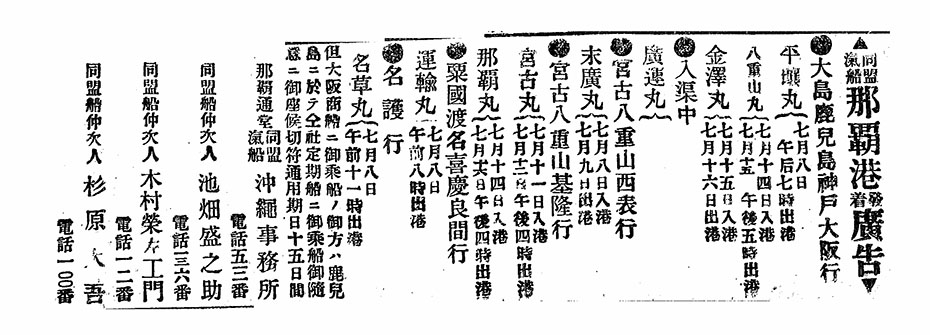 ▲同盟汽船那覇港発着廣告▼
●大島鹿兒島神戸大阪行
平壤丸 七月八日 午后七時出港
八重山丸 七月十四日入港 七月十五日午後五時出港
金澤丸 七月十五日入港 七月十六日出港
●入渠中
廣運丸
●宮古八重山西表行
末廣丸 七月八日入港 七月九日出港
●宮古八重山基隆行
宮古丸 七月十一日入港 七月十二日午後四時出港
那覇丸 七月十四日入港 七月十六日午後四時出港
●粟國渡名喜慶良間行
運輸丸 七月八日 午前八時出港
●名護行
名草丸 七月八日 午前十一時出港
但大阪商船ニ御乘船ノ御方ハ鹿兒
島ニ於テ仝社定期船ニ御乘船御隨
意ニ御座候切符通用期日十五日間
那覇通堂 同盟汽船 沖繩事務所
電話五三番
同盟船仲次人 池畑盛之助
電話一三六番
同盟船仲次人 木村榮左工門
電話一二番
同盟船仲次人 杉原大吾
電話一〇〇番